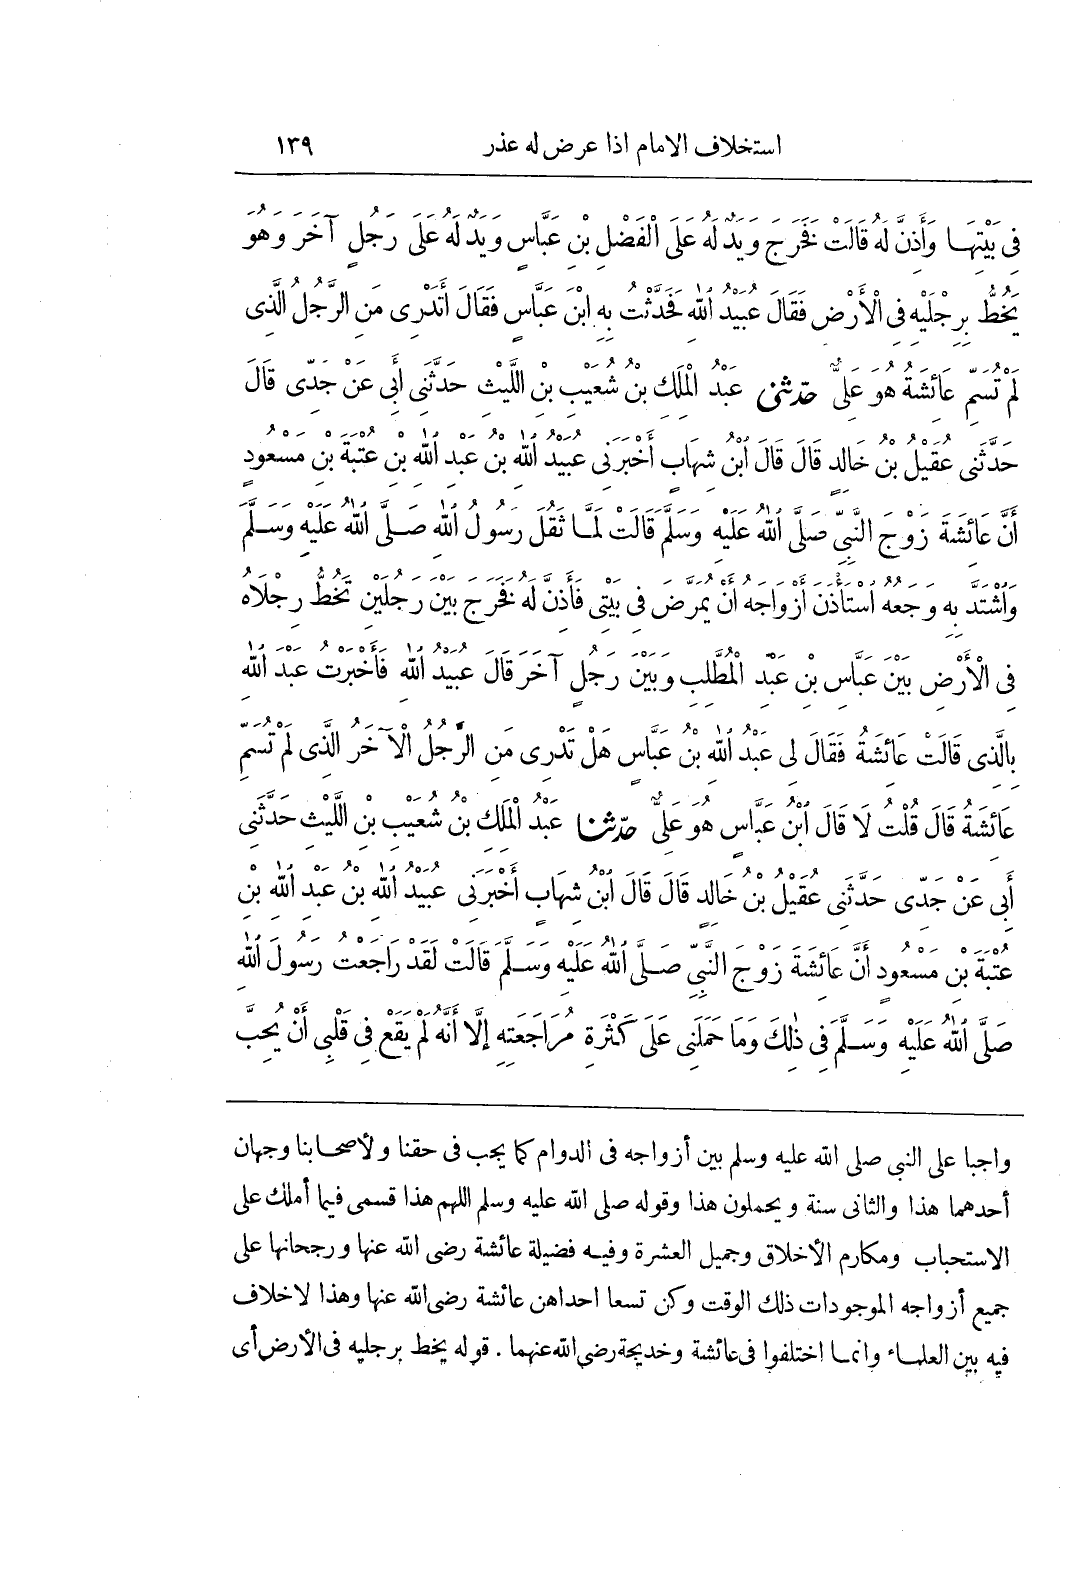 استخلاف الامام اذا عرض له عذر ١٣٩
فِى بَيْتِهَا وَأَذِنَّ لَهُ قَالَتْ فَخَرَجَ وَيَدٌ لَهُ عَلَى الْفَضْلِ بْنِ عَبَّاسٍ وَيَدٌ لَهُ عَلَى رَجُلٍ آخَرَ وَهُوَ
يَخُطُّ بِرِجْلَيْهِ فِى الْأَرْضِ فَقَالَ عُبَيْدُ اللهِ فَحَدَّثْتُ بِهِ ابْنَ عَبَّاسٍ فَقَالَ أَتَدْرِى مَنِ الرَّجُلُ الَّذِى
لَمْ تُسَمِّ عَائِشَةُ هُوَ عَلِىٌّ حَدَّثَنِى عَبْدُ الْمَلِكِ بْنُ شُعَيْبِ بْنِ اللَّيْثِ حَدَّثَنِى أَبِى عَنْ جَدِّى قَالَ
حَدَّثَنِى عُقَيْلُ بْنُ خَالِدٍ قَالَ قَالَ ابْنُ شِهَابٍ أَخْبَرَنِى عُبَيْدُ اللهِ بْنُ عَبْدِ اللهِ بْنِ عُتْبَةَ بْنِ مَسْعُودٍ
أَنَّ عَائِشَةَ زَوْجَ النَّبِىِّ صَلَّى اللهُ عَلَيْهِ وَسَلَّمَ قَالَتْ لَمَّا ثَقُلَ رَسُولُ اللهِ صَلَّى اللهُ عَلَيْهِ وَسَلَّمَ
وَاشْتَدَّ بِهِ وَجَعُهُ اسْتَأْذَنَ أَزْوَاجَهُ أَنْ يُمَرَّضَ فِى بَيْتِى فَأَذِنَّ لَهُ فَخَرَجَ بَيْنَ رَجُلَيْنِ تَخُطُّ رِجْلَاهُ
فِى الْأَرْضِ بَيْنَ عَبَّاسِ بْنِ عَبْدِ الْمُطَّلِبِ وَبَيْنَ رَجُلٍ آخَرَ قَالَ عُبَيْدُ اللهِ فَأَخْبَرْتُ عَبْدَ اللهِ
بِالَّذِى قَالَتْ عَائِشَةُ فَقَالَ لِى عَبْدُ اللهِ بْنُ عَبَّاسٍ هَلْ تَدْرِى مَنِ الرَّجُلُ الْآخَرُ الَّذِى لَمْ تُسَمِّ
عَائِشَةُ قَالَ قُلْتُ لَا قَالَ ابْنُ عَبَّاسٍ هُوَ عَلِىٌّ حَدَّثَنَا عَبْدُ الْمَلِكِ بْنُ شُعَيْبِ بْنِ اللَّيْثِ حَدَّثَنِى
أَبِى عَنْ جَدِّى حَدَّثَنِى عُقَيْلُ بْنُ خَالِدٍ قَالَ قَالَ ابْنُ شِهَابٍ أَخْبَرَنِى عُبَيْدُ اللهِ بْنُ عَبْدِ اللهِ بْنِ
عُتْبَةَ بْنِ مَسْعُودٍ أَنَّ عَائِشَةَ زَوْجَ النَّبِىِّ صَلَّى اللهُ عَلَيْهِ وَسَلَّمَ قَالَتْ لَقَدْ رَاجَعْتُ رَسُولَ اللهِ
صَلَّى اللهُ عَلَيْهِ وَسَلَّمَ فِى ذٰلِكَ وَمَا حَمَلَنِى عَلَى كَثْرَةِ مُرَاجَعَتِهِ إِلَّا أَنَّهُ لَمْ يَقَعْ فِى قَلْبِى أَنْ يُحِبَّ
واجبا على النبى صلى الله عليه وسلم بين أزواجه فى الدوام كما يجب فى حقنا ولأصحابنا وجهان
أحدهما هذا والثانى سنة ويحملون هذا وقوله صلى الله عليه وسلم اللهم هذا قسمى فيما أملك على
الاستحباب ومكارم الأخلاق وجميل العشرة وفيه فضيلة عائشة رضى الله عنها ورجحانها على
جميع أزواجه الموجودات ذلك الوقت وكن تسعا احداهن عائشة رضى الله عنها وهذا لاخلاف
فيه بين العلماء وانما اختلفوا فى عائشة وخديجة رضى الله عنهما . قوله يخط برجليه فى الأرض أى